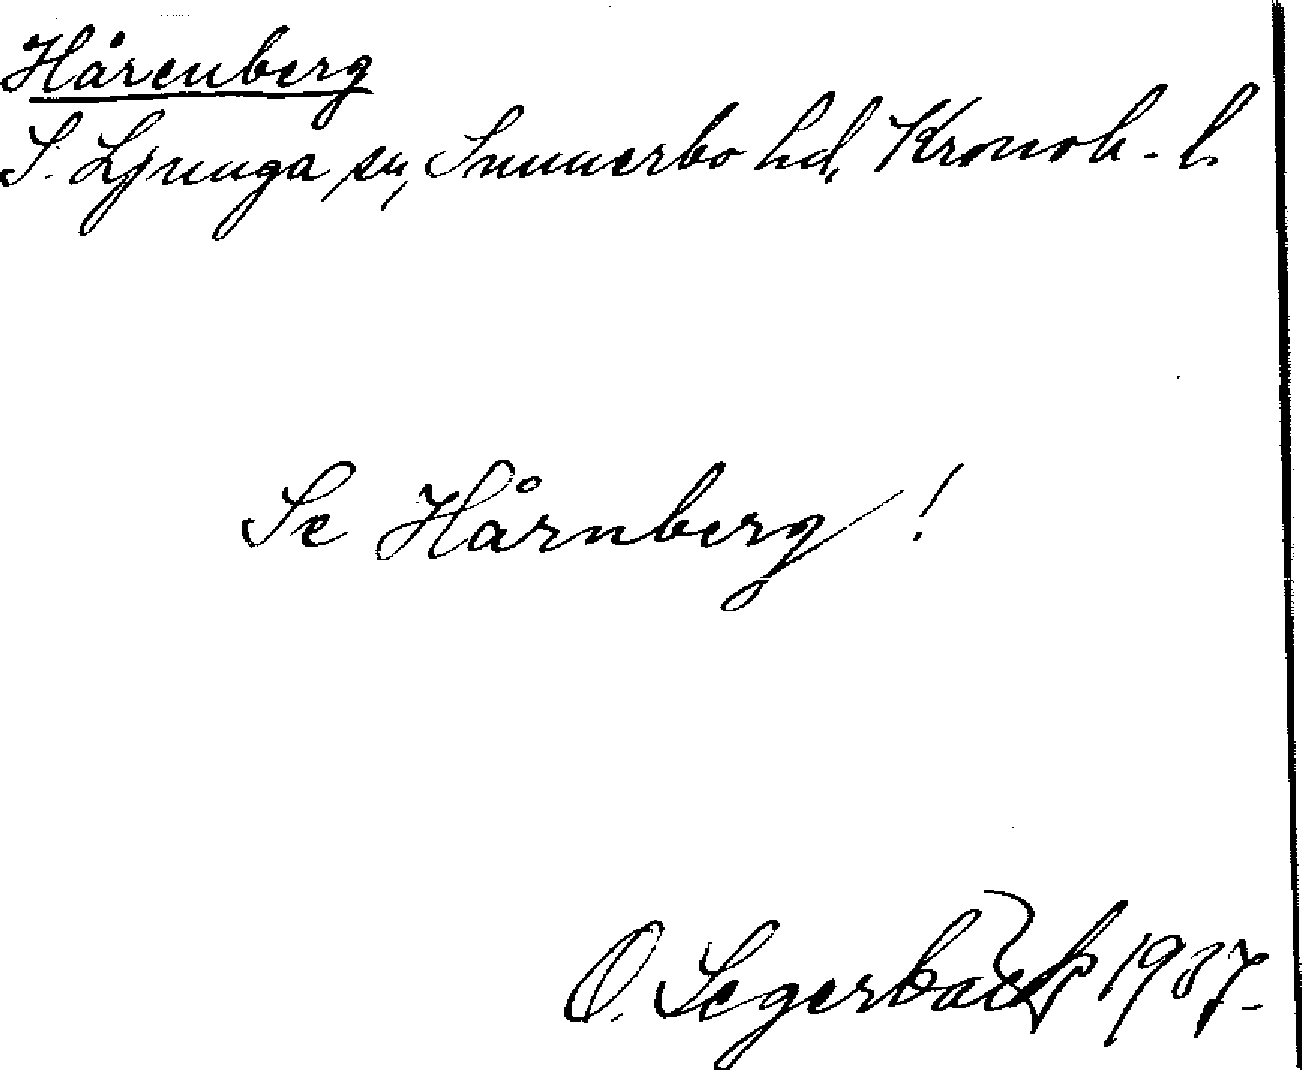 Hårenberg
S. Ljunga sn, Sunnerbo hd, Kronob. l.
Se Hårnberg!
O. Segerbäck 1937.